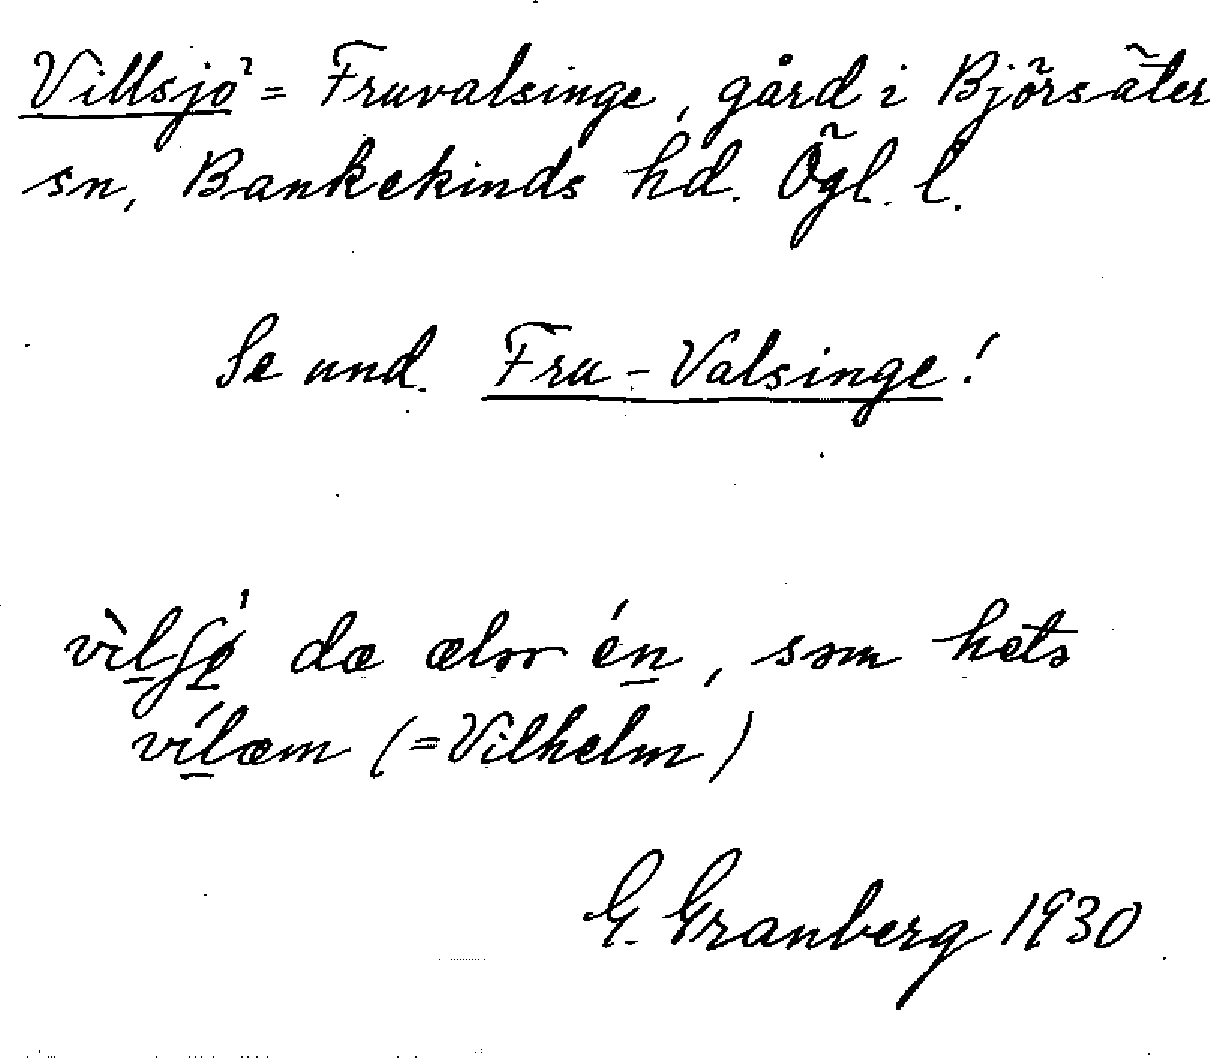 Villsjö = Fruvalsinge, gård i Björsäter
sn, Bankekinds hd. Ögl. l.
Se und. Fru-Valsinge!
då én, som
vílæm (=Vilhelm)
G. Granberg 1930